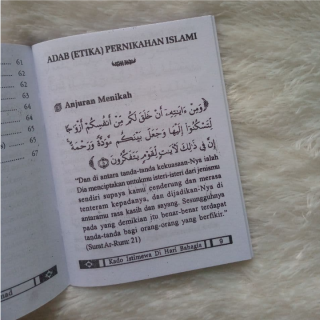 61
64
65
65
67
ADAB (ETIKA) PERNIKAHAN ISLAMI
Anjuran Menikah
﴿وَمِنْ ءَايَٰتِهِۦٓ أَنْ خَلَقَ لَكُم مِّنْ أَنفُسِكُمْ أَزْوَٰجًا
لِّتَسْكُنُوٓا۟ إِلَيْهَا وَجَعَلَ بَيْنَكُم مَّوَدَّةً وَرَحْمَةً
إِنَّ فِى ذَٰلِكَ لَءَايَٰتٍ لِّقَوْمٍ يَتَفَكَّرُونَ﴾
"Dan di antara tanda-tanda kekuasaan-Nya ialah
Dia menciptakan untukmu isteri-isteri dari jenismu
sendiri supaya kamu cenderung dan merasa
tenteram kepadanya, dan dijadikan-Nya di
antaramu rasa kasih dan sayang. Sesungguhnya
pada yang demikian itu benar-benar terdapat
tanda-tanda bagi orang-orang yang berfikir."
(Surat Ar-Rum: 21)
Kado Istimewa Di Hari Bahagia
9